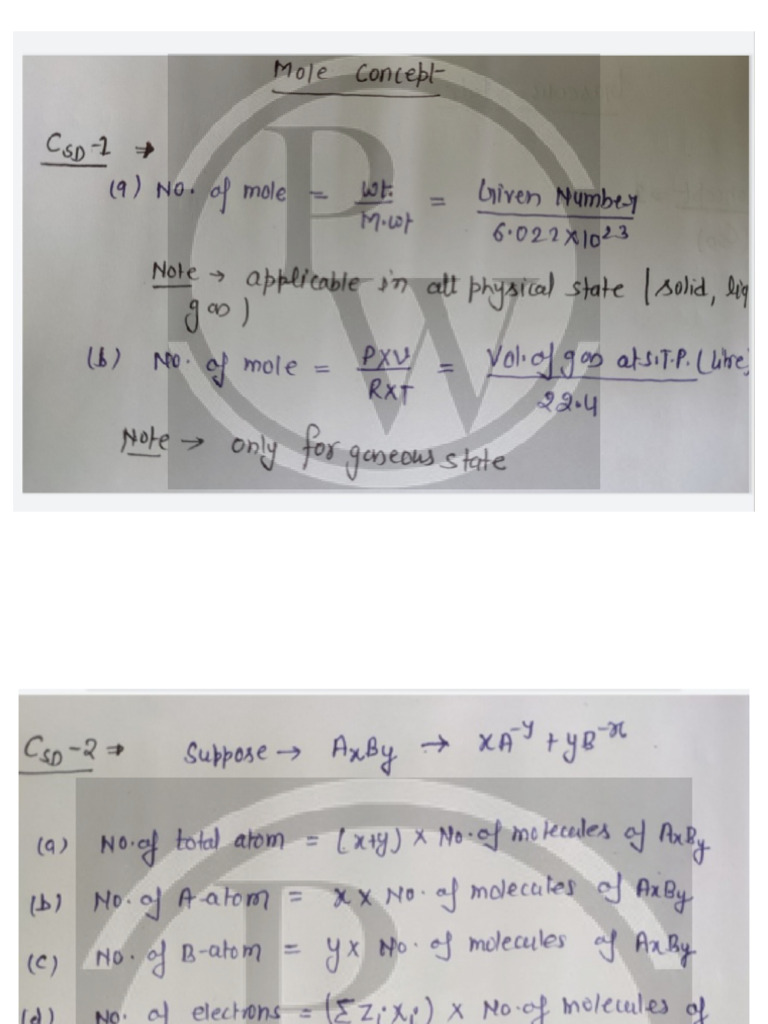 Mole Concept
CSD-1 ⇒
(a) No. of mole = wt. / M.wt = Given Number / 6.022×10²³
Note → applicable in all physical state (solid, liq
gas)
(b) No. of mole = P×V / R×T = Vol. of gas at S.T.P. (litre) / 22.4
Note → only for gaseous state
CSD-2 ⇒ Suppose → AxBy → xA⁻ʸ + yB⁻ˣ
(a) No. of total atom = (x+y) × No. of molecules of AxBy
(b) No. of A-atom = x × No. of molecules of AxBy
(c) No. of B-atom = y × No. of molecules of AxBy
(d) No. of electrons = (ΣZᵢxᵢ) × No. of molecules of
PW
P